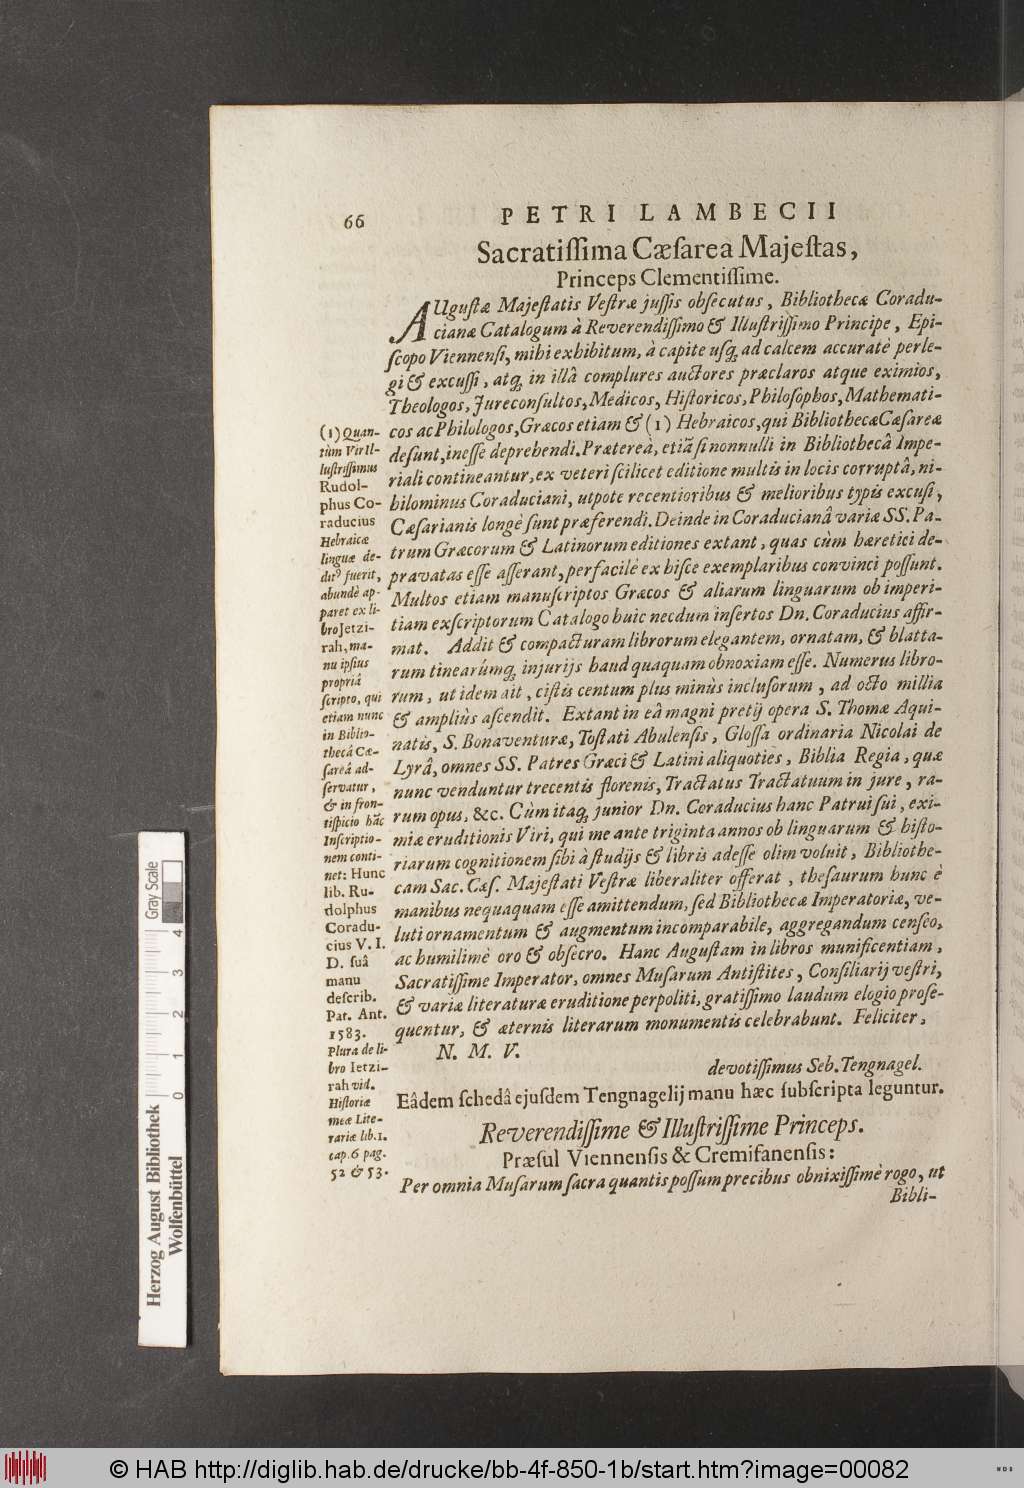 66
PETRI LAMBECII
Sacratiſſima Cæſarea Majeſtas,
Princeps Clementiſſime.
AUguſtæ Majeſtatis Veſtræ juſſis obſecutus, Bibliothecæ Coradu-
cianæ Catalogum à Reverendiſſimo & Illuſtriſſimo Principe, Epi-
ſcopo Viennenſi, mihi exhibitum, à capite uſq; ad calcem accuratè perle-
gi & excuſſi, atq; in illâ complures auctores præclaros atque eximios,
Theologos, Jureconſultos, Medicos, Hiſtoricos, Philoſophos, Mathemati-
cos ac Philologos, Græcos etiam & (1) Hebraicos, qui Bibliothecæ Cæſareæ
deſunt, ineſſe deprehendi. Prætereà, etiã ſi nonnulli in Bibliothecâ Impe-
riali contineantur, ex veteri ſcilicet editione multis in locis corruptâ, ni-
hilominus Coraduciani, utpote recentioribus & melioribus typis excuſi,
Cæſarianis longè ſunt præferendi. Deinde in Coraducianâ variæ SS. Pa-
trum Græcorum & Latinorum editiones extant, quas cùm hæretici de-
pravatas eſſe aſſerant, perfacilè ex hiſce exemplaribus convinci poſſunt.
Multos etiam manuſcriptos Græcos & aliarum linguarum ob imperi-
tiam exſcriptorum Catalogo huic necdum inſertos Dn. Coraducius affir-
mat. Addit & compacturam librorum elegantem, ornatam, & blatta-
rum tinearúmq; injurijs haud quaquam obnoxiam eſſe. Numerus libro-
rum, ut idem ait, ciſtis centum plus minùs incluſorum, ad octo millia
& ampliùs aſcendit. Extant in eâ magni pretij opera S. Thomæ Aqui-
natis, S. Bonaventuræ, Toſtati Abulenſis, Gloſſa ordinaria Nicolai de
Lyrâ, omnes SS. Patres Græci & Latini aliquoties, Biblia Regia, quæ
nunc venduntur trecentis florenis, Tractatus Tractatuum in jure, ra-
rum opus, &c. Cùm itaq; junior Dn. Coraducius hanc Patrui ſui, exi-
miæ eruditionis Viri, qui me ante triginta annos ob linguarum & hiſto-
riarum cognitionem ſibi à ſtudijs & libris adeſſe olim voluit, Bibliothe-
cam Sac. Cæſ. Majeſtati Veſtræ liberaliter offerat, theſaurum hunc è
manibus nequaquam eſſe amittendum, ſed Bibliothecæ Imperatoriæ, ve-
luti ornamentum & augmentum incomparabile, aggregandum cenſeo,
ac humilimè oro & obſecro. Hanc Auguſtam in libros munificentiam,
Sacratiſſime Imperator, omnes Muſarum Antiſtites, Conſiliarij veſtri,
& variæ literaturæ eruditione perpoliti, gratiſſimo laudum elogio proſe-
quentur, & æternis literarum monumentis celebrabunt. Feliciter,
N. M. V.
devotiſſimus Seb. Tengnagel.
Eâdem ſchedâ ejuſdem Tengnagelij manu hæc ſubſcripta leguntur.
Reverendiſſime & Illuſtriſſime Princeps.
Præſul Viennenſis & Cremifanenſis:
Per omnia Muſarum ſacra quantis poſſum precibus obnixiſſimè rogo, ut
Bibli-
(1) Quan-
tùm Vir Il-
luſtriſſimus
Rudol-
phus Co-
raducius
Hebraicæ
linguæ de-
ditꝰ fuerit,
abundè ap-
paret ex li-
bro Jetzi-
rah, ma-
nu ipſius
propriâ
ſcripto, qui
etiam nunc
in Biblio-
thecâ Cæ-
ſareâ ad-
ſervatur,
& in fron-
tiſpicio hãc
Inſcriptio-
nem conti-
net: Hunc
lib. Ru-
dolphus
Coradu-
cius V. I.
D. ſuâ
manu
deſcrib.
Pat. Ant.
1583.
Plura de li-
bro Ietzi-
rah vid.
Hiſtoriæ
meæ Lite-
rariæ lib. 1.
cap. 6 pag.
52 & 53.
Herzog August Bibliothek
Wolfenbüttel
Gray Scale
0 1 2 3 4
© HAB http://diglib.hab.de/drucke/bb-4f-850-1b/start.htm?image=00082